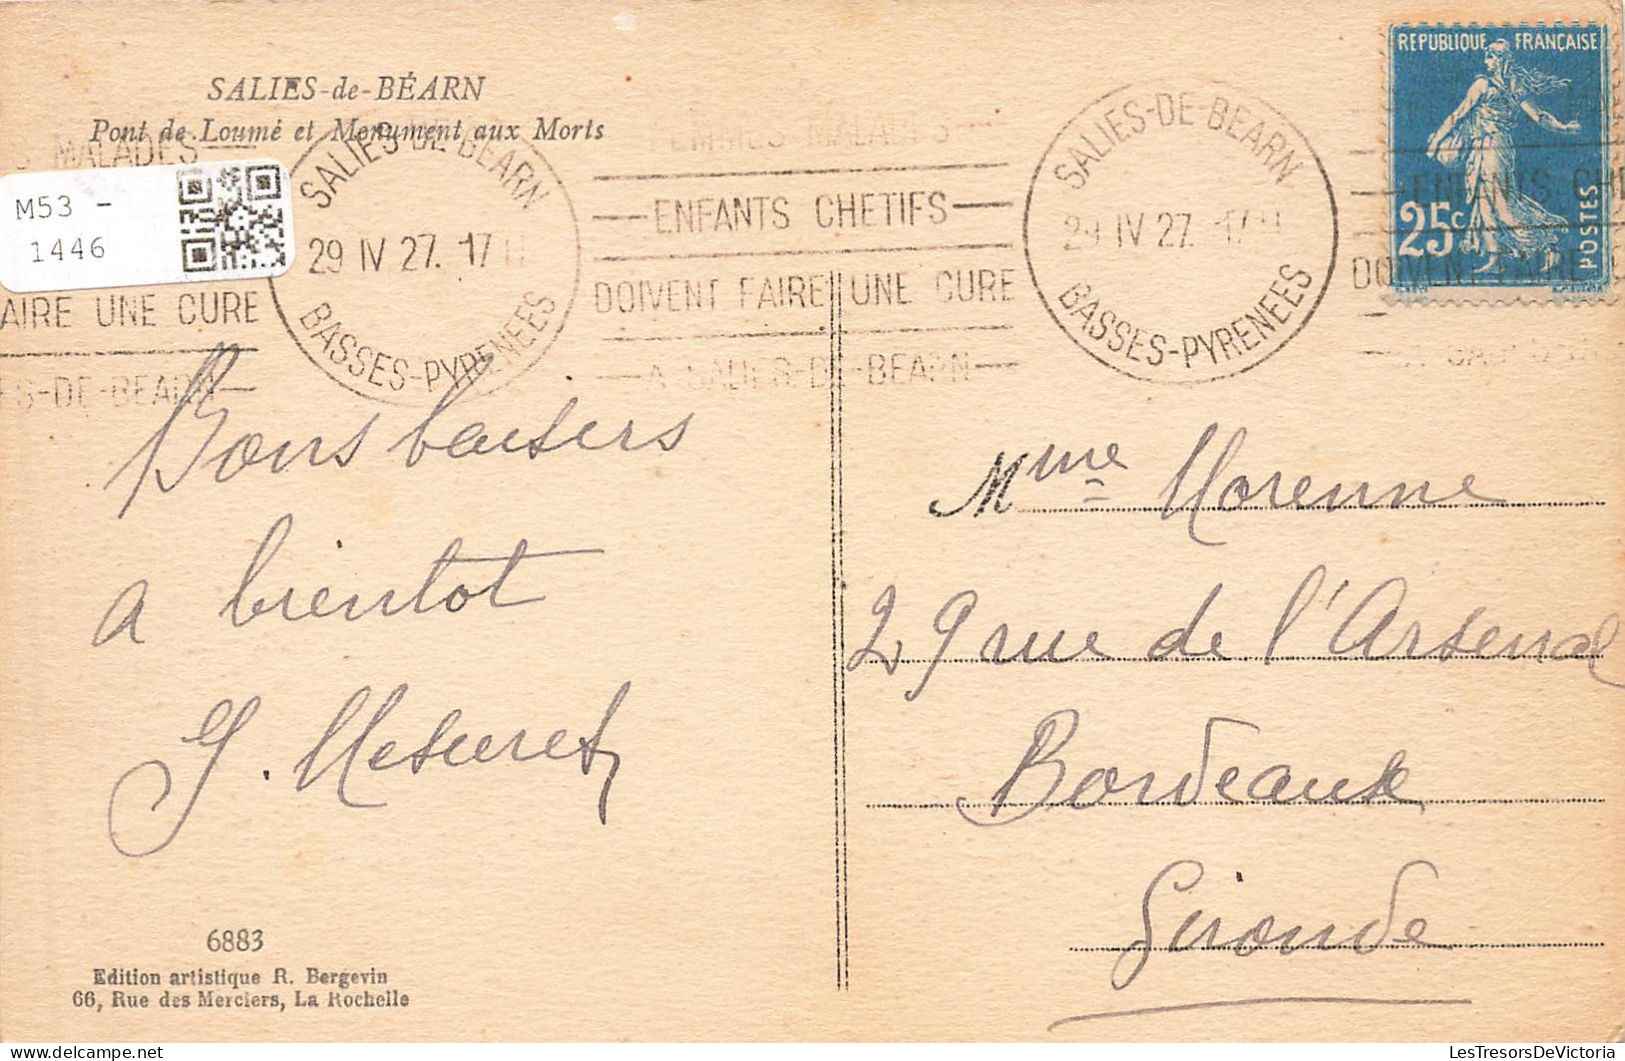 SALIES-de-BÉARN
Pont de Loumé et Monument aux Morts
M53 -
1446
S MALADES
AIRE UNE CURE
ES-DE-BEARN
SALIES-DE-BEARN
29 IV 27. 17 H
BASSES-PYRENEES
FEMMES MALADES
ENFANTS CHETIFS
DOIVENT FAIRE UNE CURE
A SALIES-DE-BEARN
SALIES-DE-BEARN
29 IV 27. 17 H
BASSES-PYRENEES
ENFANTS CHE
DOIVENT FAIRE
REPUBLIQUE FRANÇAISE
25c
POSTES
Bons baisers
a bientot
Mme Morenne
29 rue de l'Arsenal
Bordeaux
Gironde
6883
Edition artistique R. Bergevin
66, Rue des Merciers, La Rochelle
LesTresorsDeVictoria